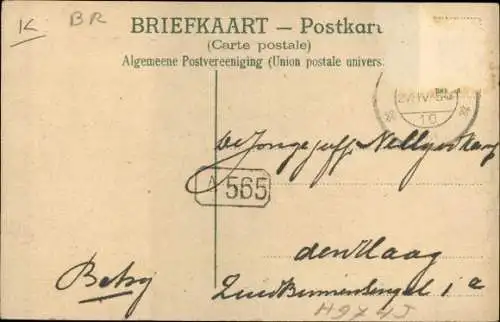 K BR
BRIEFKAART — Postkart
(Carte postale)
Algemeene Postvereeniging (Union postale univers:
10
De Jonge juffr Nelly
A 565
den Haag
Betsy
Zuid Binnensingel 1a
H974J